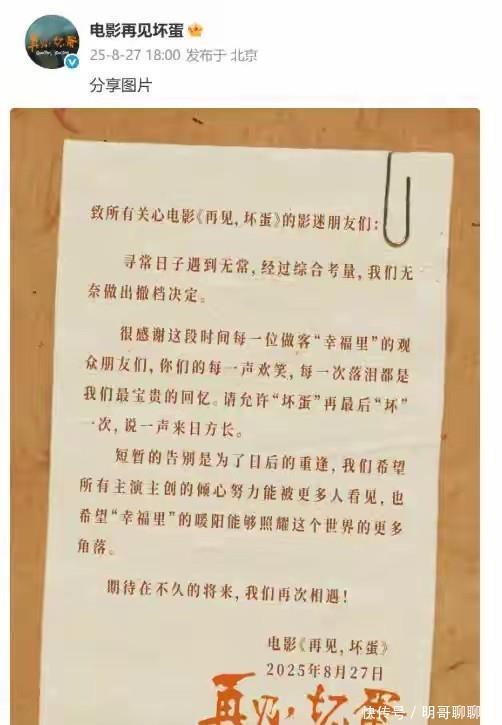 电影再见坏蛋
25-8-27 18:00 发布于 北京
分享图片
致所有关心电影《再见，坏蛋》的影迷朋友们：
寻常日子遇到无常，经过综合考量，我们无
奈做出撤档决定。
很感谢这段时间每一位做客“幸福里”的观
众朋友们，你们的每一声欢笑，每一次落泪都是
我们最宝贵的回忆。请允许“坏蛋”再最后“坏”
一次，说一声来日方长。
短暂的告别是为了日后的重逢，我们希望
所有主演主创的倾心努力能被更多人看见，也
希望“幸福里”的暖阳能够照耀这个世界的更多
角落。
期待在不久的将来，我们再次相遇！
电影《再见，坏蛋》
2025年8月27日
再见，坏蛋
快传号/明哥聊聊